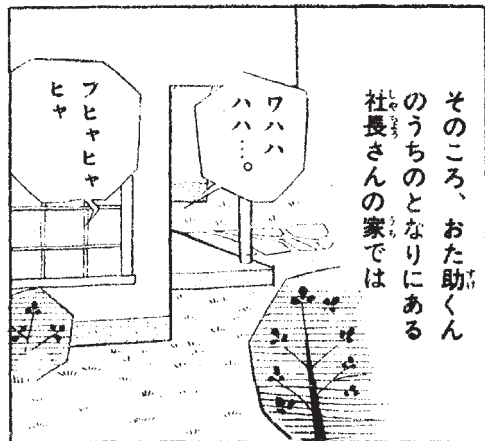 そのころ、おた助くん
のうちのとなりにある
社長さんの家では
ワハハ
ハハ…。
ブヒャヒャ
ヒャ